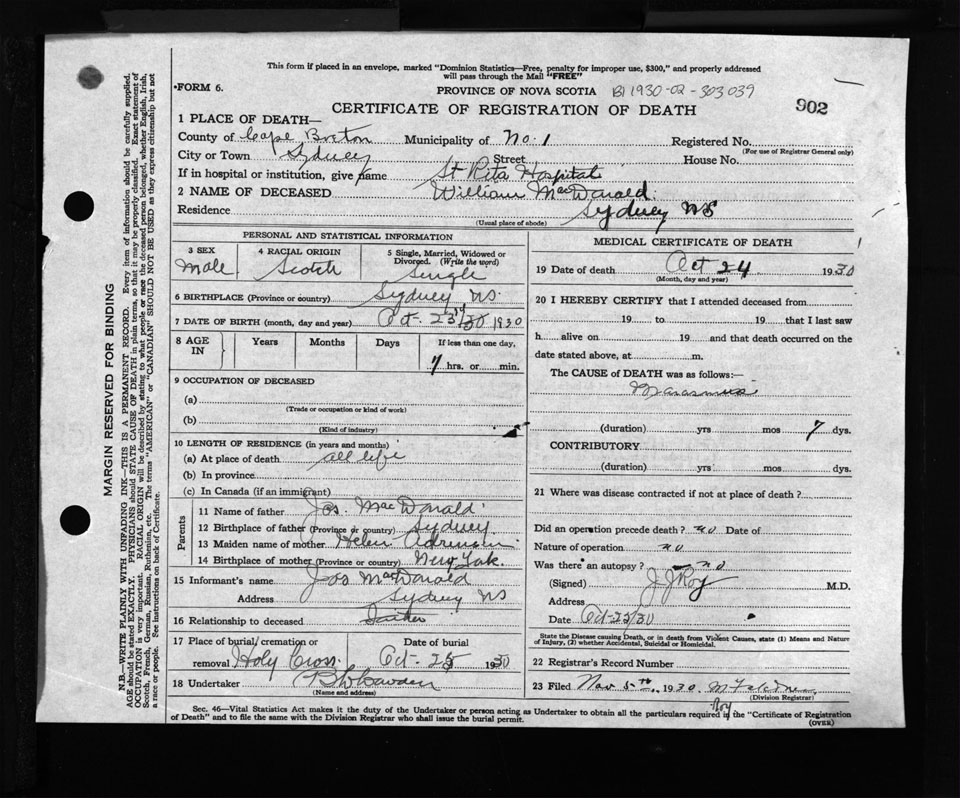 This form if placed in an envelope, marked "Dominion Statistics—Free, penalty for improper use, $300," and properly addressed
will pass through the Mail "FREE"
•FORM 6.
PROVINCE OF NOVA SCOTIA B1930-02-303039
CERTIFICATE OF REGISTRATION OF DEATH 902
1 PLACE OF DEATH—
County of Cape Breton Municipality of No. 1 Registered No.
(For use of Registrar General only)
City or Town Sydney Street House No.
If in hospital or institution, give name St Rita Hospital
2 NAME OF DECEASED William MacDonald
Residence Sydney NS
(Usual place of abode)
PERSONAL AND STATISTICAL INFORMATION
3 SEX 4 RACIAL ORIGIN 5 Single, Married, Widowed or
Divorced. (Write the word)
Male Scotch Single
6 BIRTHPLACE (Province or country) Sydney NS.
7 DATE OF BIRTH (month, day and year) Oct 23rd/30 1930
8 AGE IN Years Months Days If less than one day,
7 hrs. or min.
9 OCCUPATION OF DECEASED
(a)
(Trade or occupation or kind of work)
(b)
(Kind of industry)
10 LENGTH OF RESIDENCE (in years and months)
(a) At place of death all life
(b) In province
(c) In Canada (if an immigrant)
Parents
11 Name of father Jos. MacDonald
12 Birthplace of father (Province or country) Sydney
13 Maiden name of mother Helen
14 Birthplace of mother (Province or country) New York.
15 Informant's name Jos MacDonald
Address Sydney NS
16 Relationship to deceased Father
17 Place of burial, cremation or Date of burial
removal Holy Cross. Oct- 25 1930
18 Undertaker
(Name and address)
MEDICAL CERTIFICATE OF DEATH
19 Date of death Oct 24 1930
(Month, day and year)
20 I HEREBY CERTIFY that I attended deceased from
19 to 19 that I last saw
h alive on 19 and that death occurred on the
date stated above, at m.
The CAUSE of DEATH was as follows:—
Marasmus
(duration) yrs mos 7 dys.
CONTRIBUTORY
(duration) yrs mos dys.
21 Where was disease contracted if not at place of death?
Did an operation precede death? no Date of
Nature of operation no
Was there an autopsy? no
(Signed) J J Roy M.D.
Address
Date Oct-25/30
State the Disease causing Death, or in death from Violent Causes, state (1) Means and Nature
of Injury, (2) whether Accidental, Suicidal or Homicidal.
22 Registrar's Record Number
23 Filed Nov 5th, 1930
(Division Registrar)
Roy
Sec. 46—Vital Statistics Act makes it the duty of the Undertaker or person acting as Undertaker to obtain all the particulars required in the "Certificate of Registration
of Death" and to file the same with the Division Registrar who shall issue the burial permit.
(OVER)
MARGIN RESERVED FOR BINDING
N.B.—WRITE PLAINLY WITH UNFADING INK—THIS IS A PERMANENT RECORD. Every item of information should be carefully supplied.
AGE should be stated EXACTLY. PHYSICIANS should STATE CAUSE OF DEATH in plain terms, so that it may be properly classified. Exact statement of
OCCUPATION is very important. RACIAL ORIGIN will be described by stating to what people or race the deceased person belonged, whether English, Irish,
Scotch, French, German, Russian, Ruthenian, etc. The terms "AMERICAN" or "CANADIAN" SHOULD NOT BE USED as they express citizenship but not
a race or people. See instructions on back of Certificate.